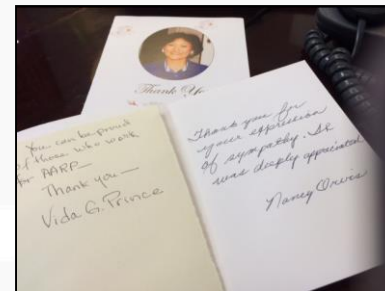 Thank Yo
You can be proud
of those who work
for AARP—
Thank you—
Vida G. Prince
Thank you for
your expression
of sympathy. It
was deeply appreciated
Nancy